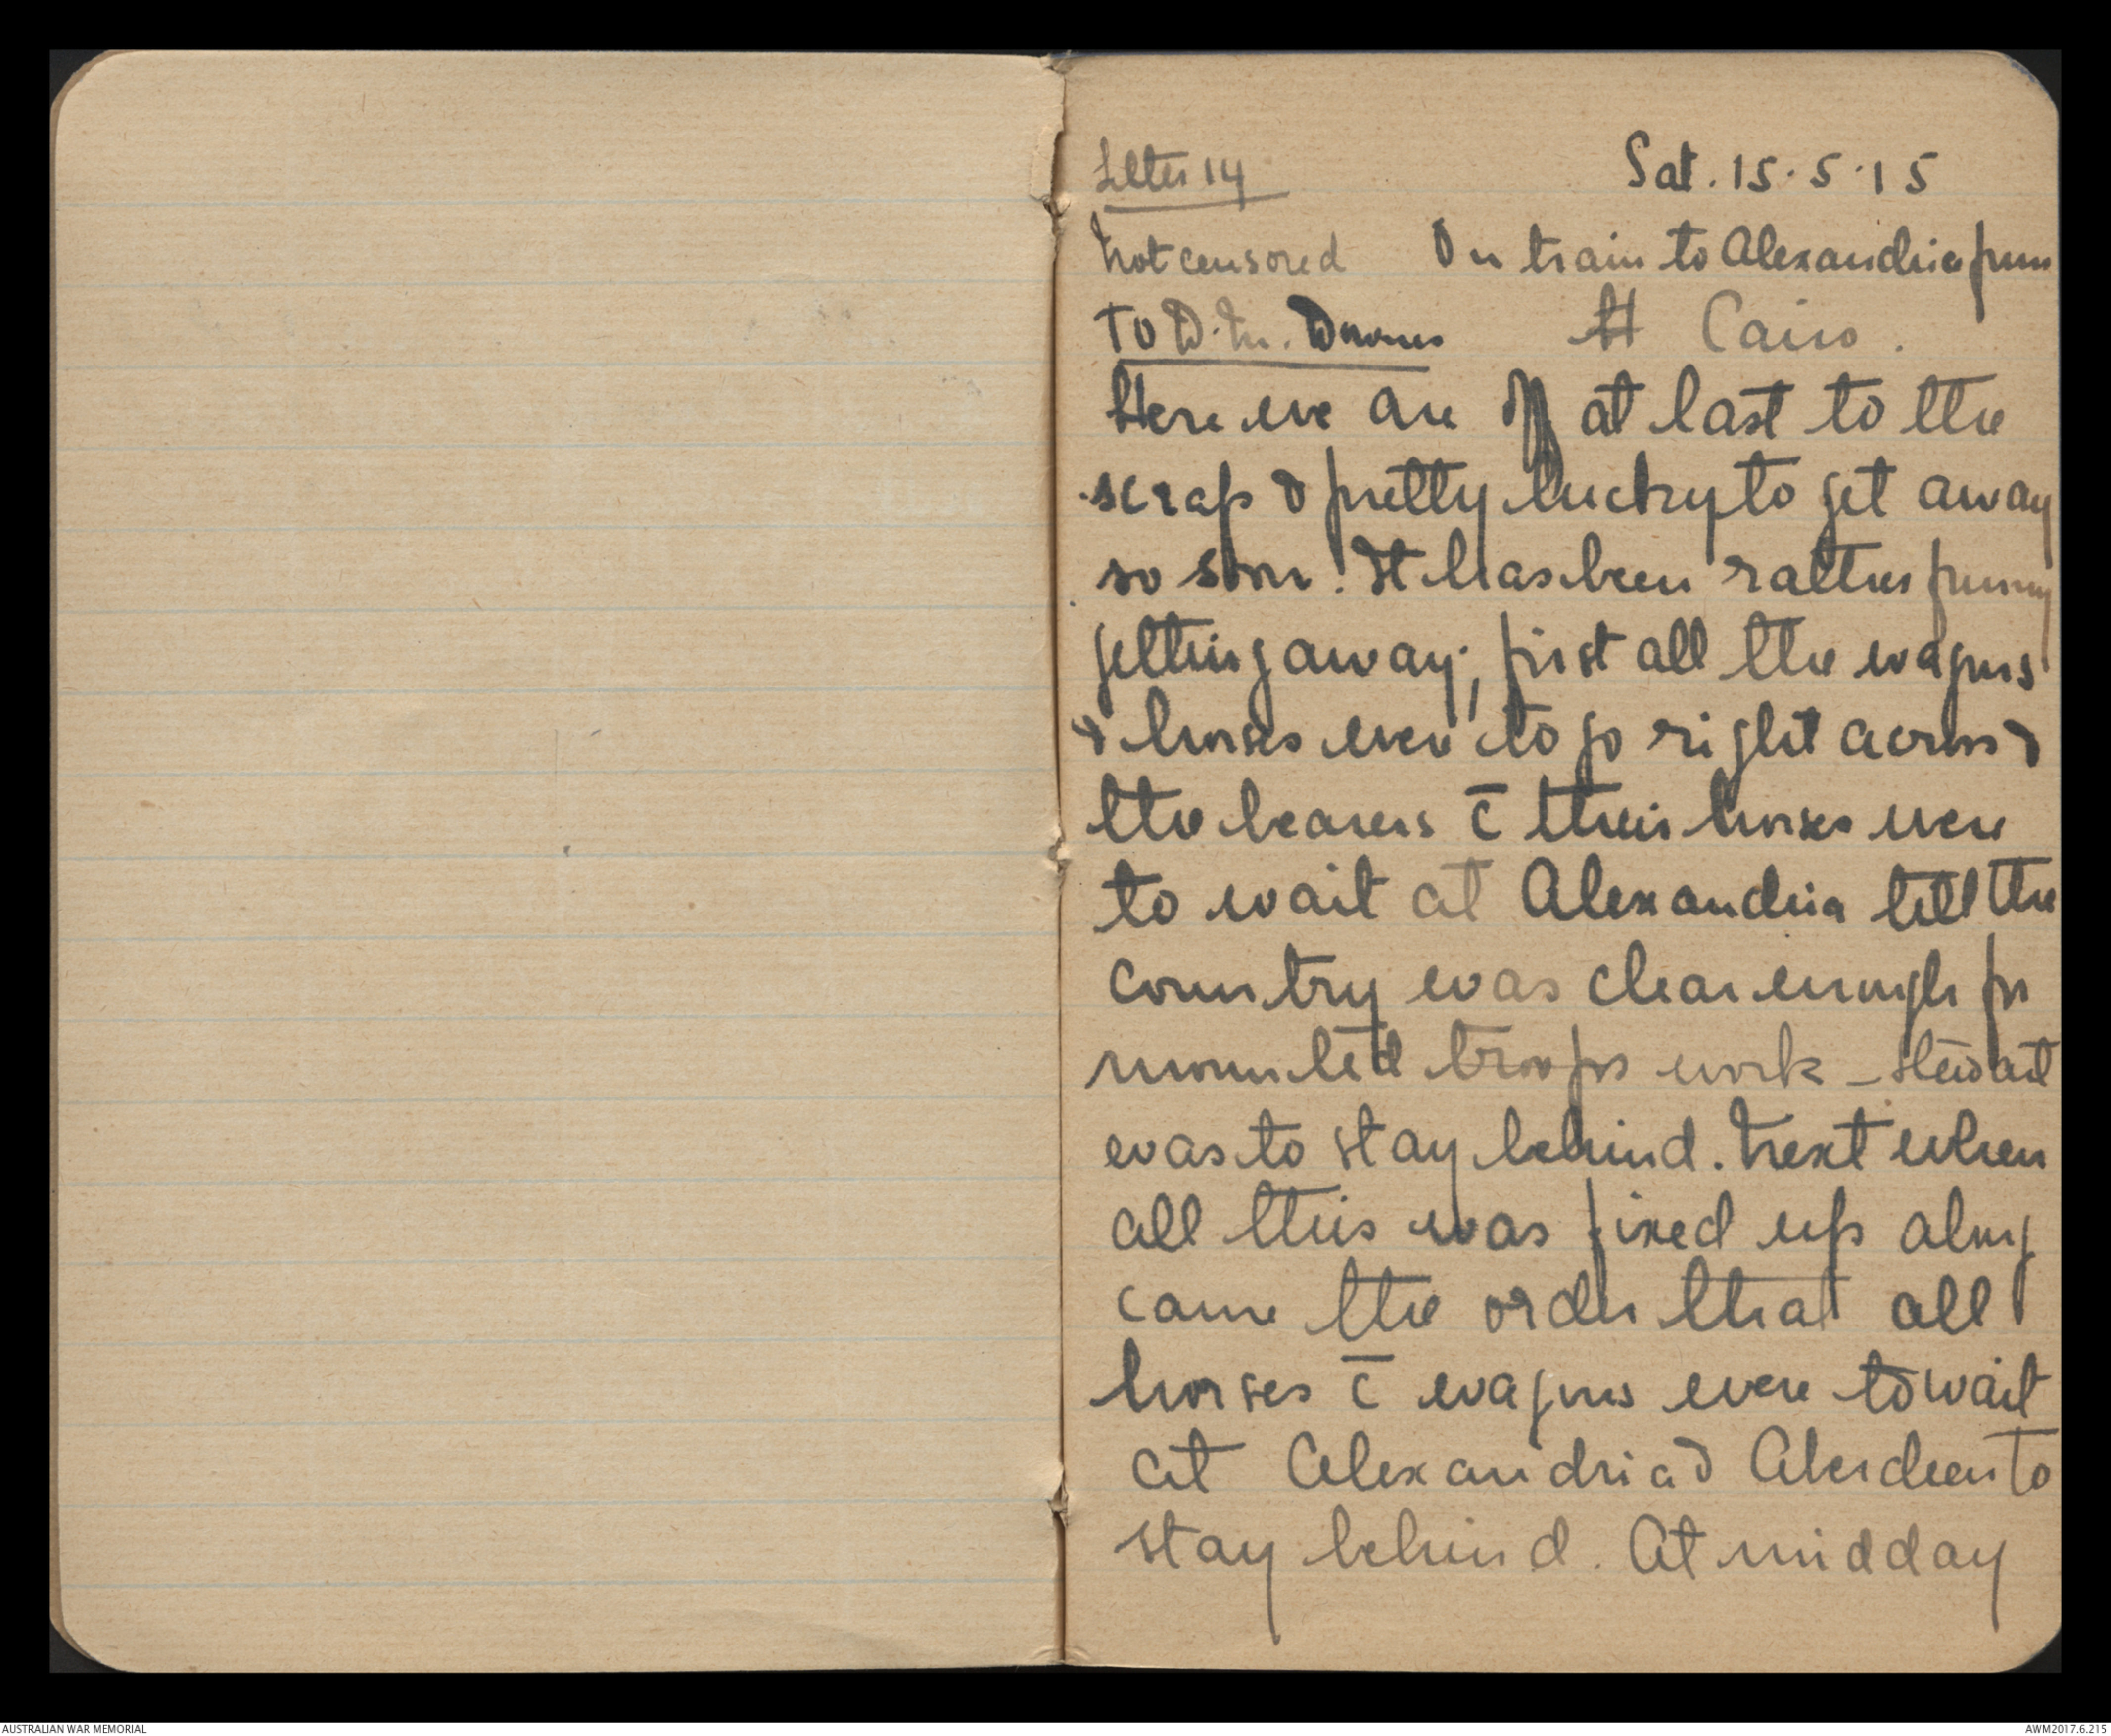 Letter 14
Sat. 15.5.15
Not censored
On train to Alexandria from
To D.M. Downes
H Cairo.
Here we are off at last to the
scrap & pretty lucky to get away
so soon. It has been rather funny
getting away; first all the wagons
& horses were to go right across &
the bearers c̄ their horses were
to wait at Alexandria till the
country was clear enough for
mounted troops work - Stewart
was to stay behind. Next when
all this was fixed up along
came the order that all
horses c̄ wagons were to wait
at Alexandria & Aberdeen to
stay behind. At midday
AUSTRALIAN WAR MEMORIAL
AWM2017.6.215